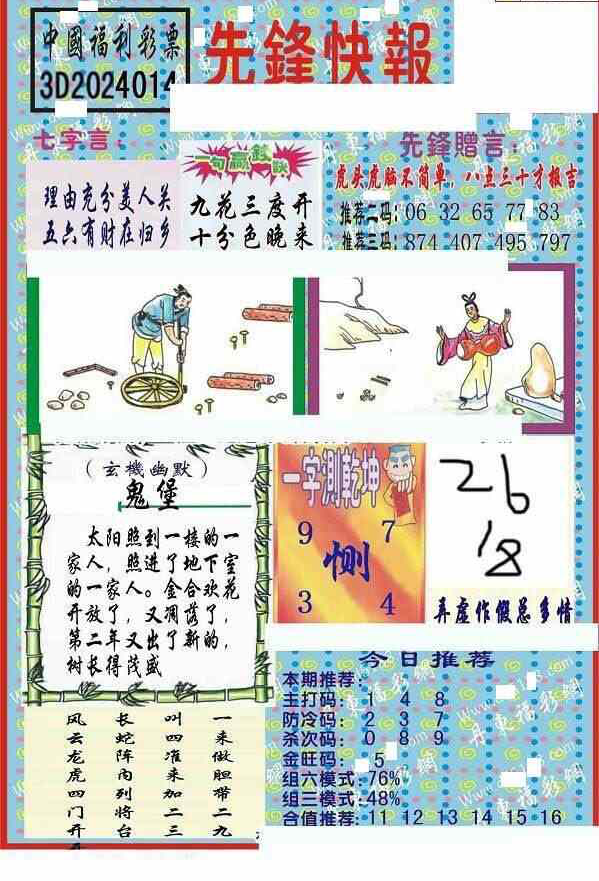 中國福利彩票
3D2024014
先鋒快報
七字言：
理由充分美人关
五六有财在归乡
一句赢钱诀
九花三度开
十分色晚来
先鋒贈言：
虎头虎脑不简单，八点三十才报吉
推荐二码：06 32 65 77 83
推荐三码：874 407 495 797
（玄機幽默）
鬼堡
太阳照到一楼的一
家人，照进了地下室
的一家人。金合欢花
开放了，又凋落了，
第二年又出了新的，
树长得茂盛
一字測乾坤
9 7
恻
3 4
26
18
弄虚作假总多情
一来做胆带二九
叫四准来加二三
长蛇阵内列将台
风云龙虎四门开
今日推荐
本期推荐：
主打码： 1 4 8
防冷码： 2 3 7
杀次码： 0 8 9
金旺码： 5
组六模式：76%
组三模式：48%
合值推荐：11 12 13 14 15 16